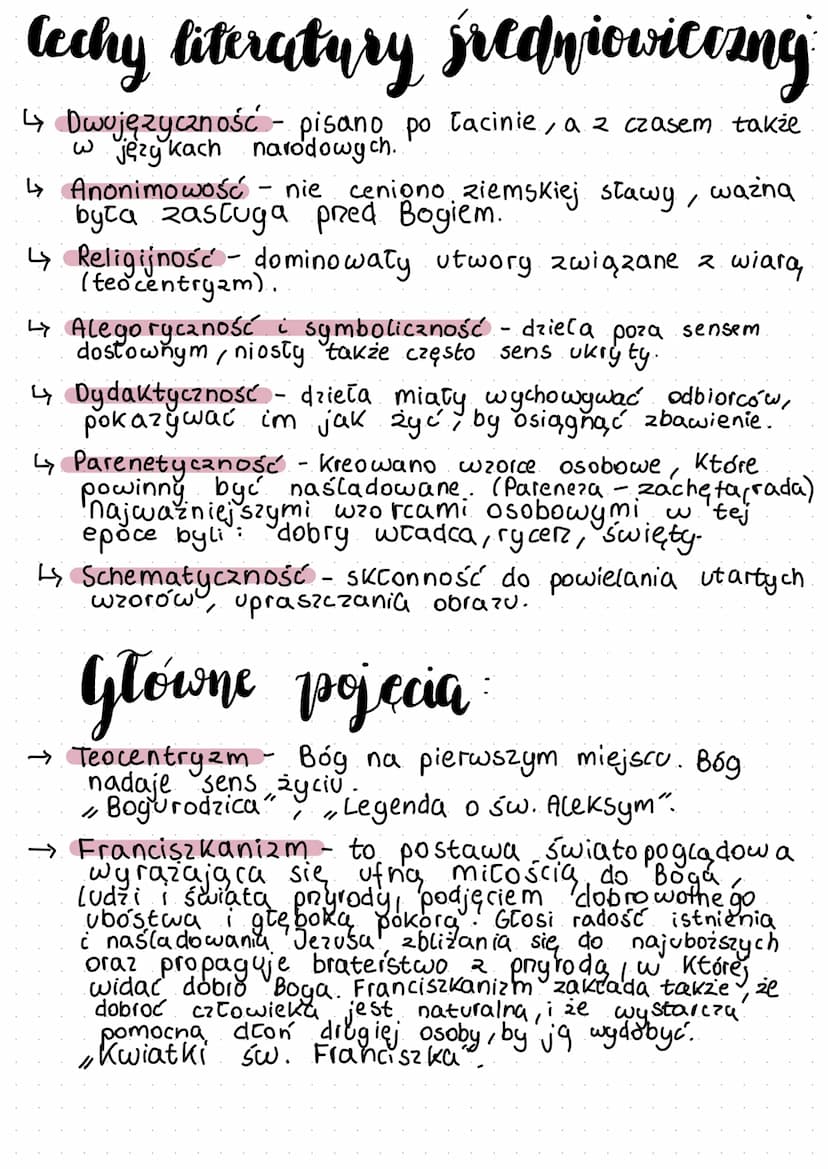 Cechy literatury średniowicznej:
↳ Dwujęzyczność - pisano po łacinie, a z czasem także
w językach narodowych.
↳ Anonimowość - nie ceniono ziemskiej sławy, ważna
była zasługa przed Bogiem.
↳ Religijność - dominowały utwory związane z wiarą
(teocentryzm).
↳ Alegoryczność i symboliczność - dzieła poza sensem
dosłownym, niosły także często sens ukryty.
↳ Dydaktyczność - dzieła miały wychowywać odbiorców,
pokazywać im jak żyć, by osiągnąć zbawienie.
↳ Parenetyczność - kreowano wzorce osobowe, które
powinny być naśladowane. (Pareneza - zachęta, rada)
Najważniejszymi wzorcami osobowymi w tej
epoce byli: dobry władca, rycerz, święty.
↳ Schematyczność - skłonność do powielania utartych
wzorów, upraszczania obrazu.
Główne pojęcia:
→ Teocentryzm - Bóg na pierwszym miejscu. Bóg
nadaje sens życiu.
„Bogurodzica”, „Legenda o św. Aleksym”.
→ Franciszkanizm - to postawa światopoglądowa
wyrażająca się ufną miłością do Boga,
ludzi i świata przyrody, podjęciem dobrowolnego
ubóstwa i głęboką pokorą. Głosi radość istnienia
i naśladowania Jezusa, zbliżania się do najuboższych
oraz propaguje braterstwo z przyrodą, w której
widać dobro Boga. Franciszkanizm zakłada także, że
dobroć człowieka jest naturalna, i że wystarcza
pomocna dłoń drugiej osoby, by ją wydobyć.
„Kwiatki św. Franciszka”.